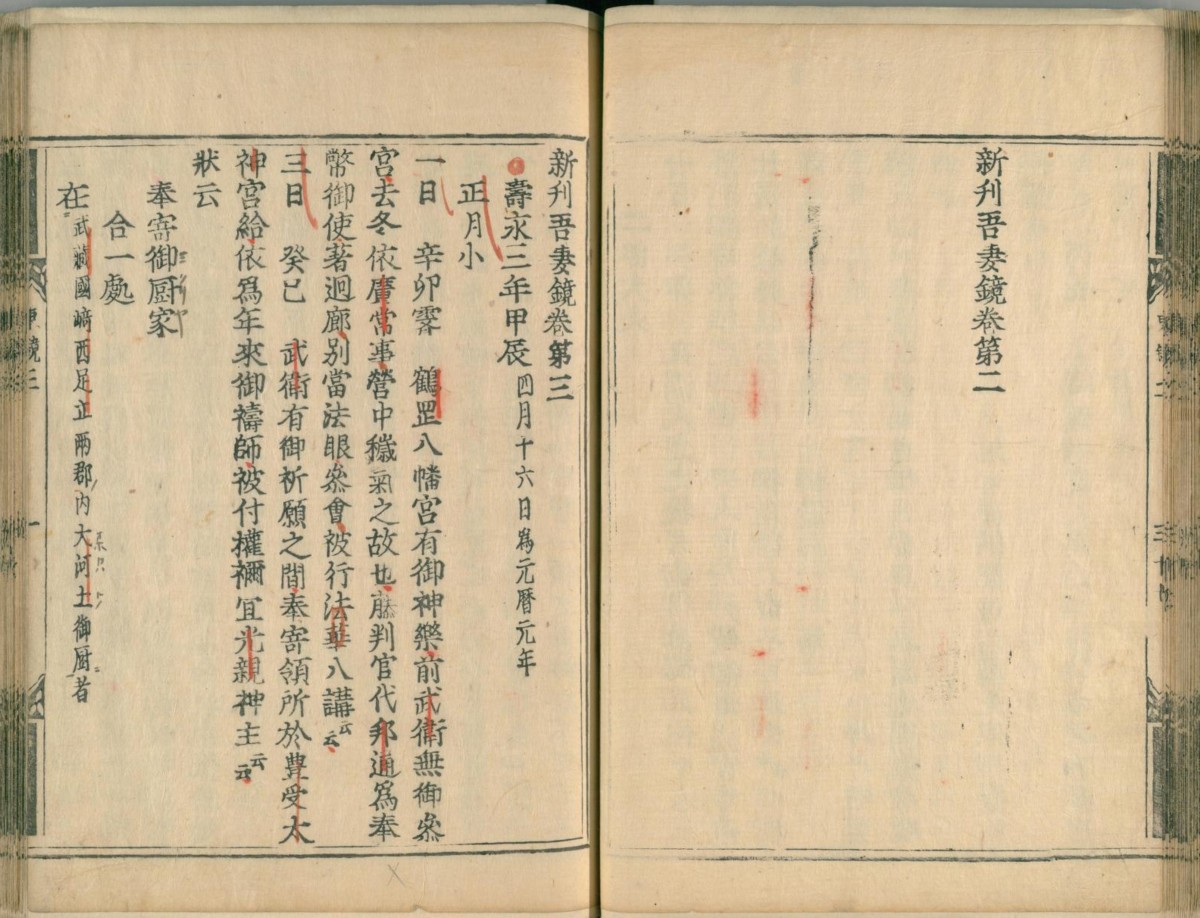 新刊吾妻鏡卷第二
新刊吾妻鏡卷第三
壽永三年甲辰 四月十六日為元曆元年
正月小
一日 辛卯霽 鶴罡八幡宮有御神樂前武衛無御參
宮去冬依廣常事營中穢氣之故也藤判官代邦通為奉
幣御使著迴廊別當法眼參會被行法華八講云云
三日 癸巳 武衛有御祈願之間奉寄領所於豊受太
神宮給依為年來御禱師被付權禰宜光親神主云云
狀云
奉寄御厨家
合一處
在武藏國崎西足立兩郡內大河土御厨者